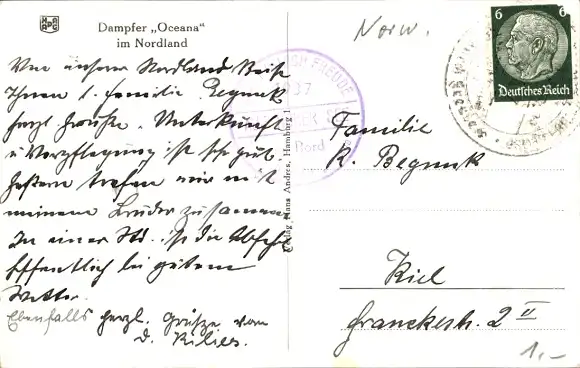 Dampfer „Oceana"
im Nordland
Von unserer Nordland Reise
Ihnen l. Familie Begmuk
herzl. Grüße. Unterkunft
u Verpflegung ist sehr gut.
Gestern trafen wir mit
meinem Bruder zusammen
In einer Std. ist die Abfahrt
hoffentlich bei gutem
Wetter.
Ebenfalls herzl. Grüße von
D. Kilies.
Verlag Hans Andres, Hamburg 1
FREUDE
37
Bord
Norw.
6 6
Deutsches Reich
Familie
K. Begmuk
Kiel
Franckestr. 2 II
1,-